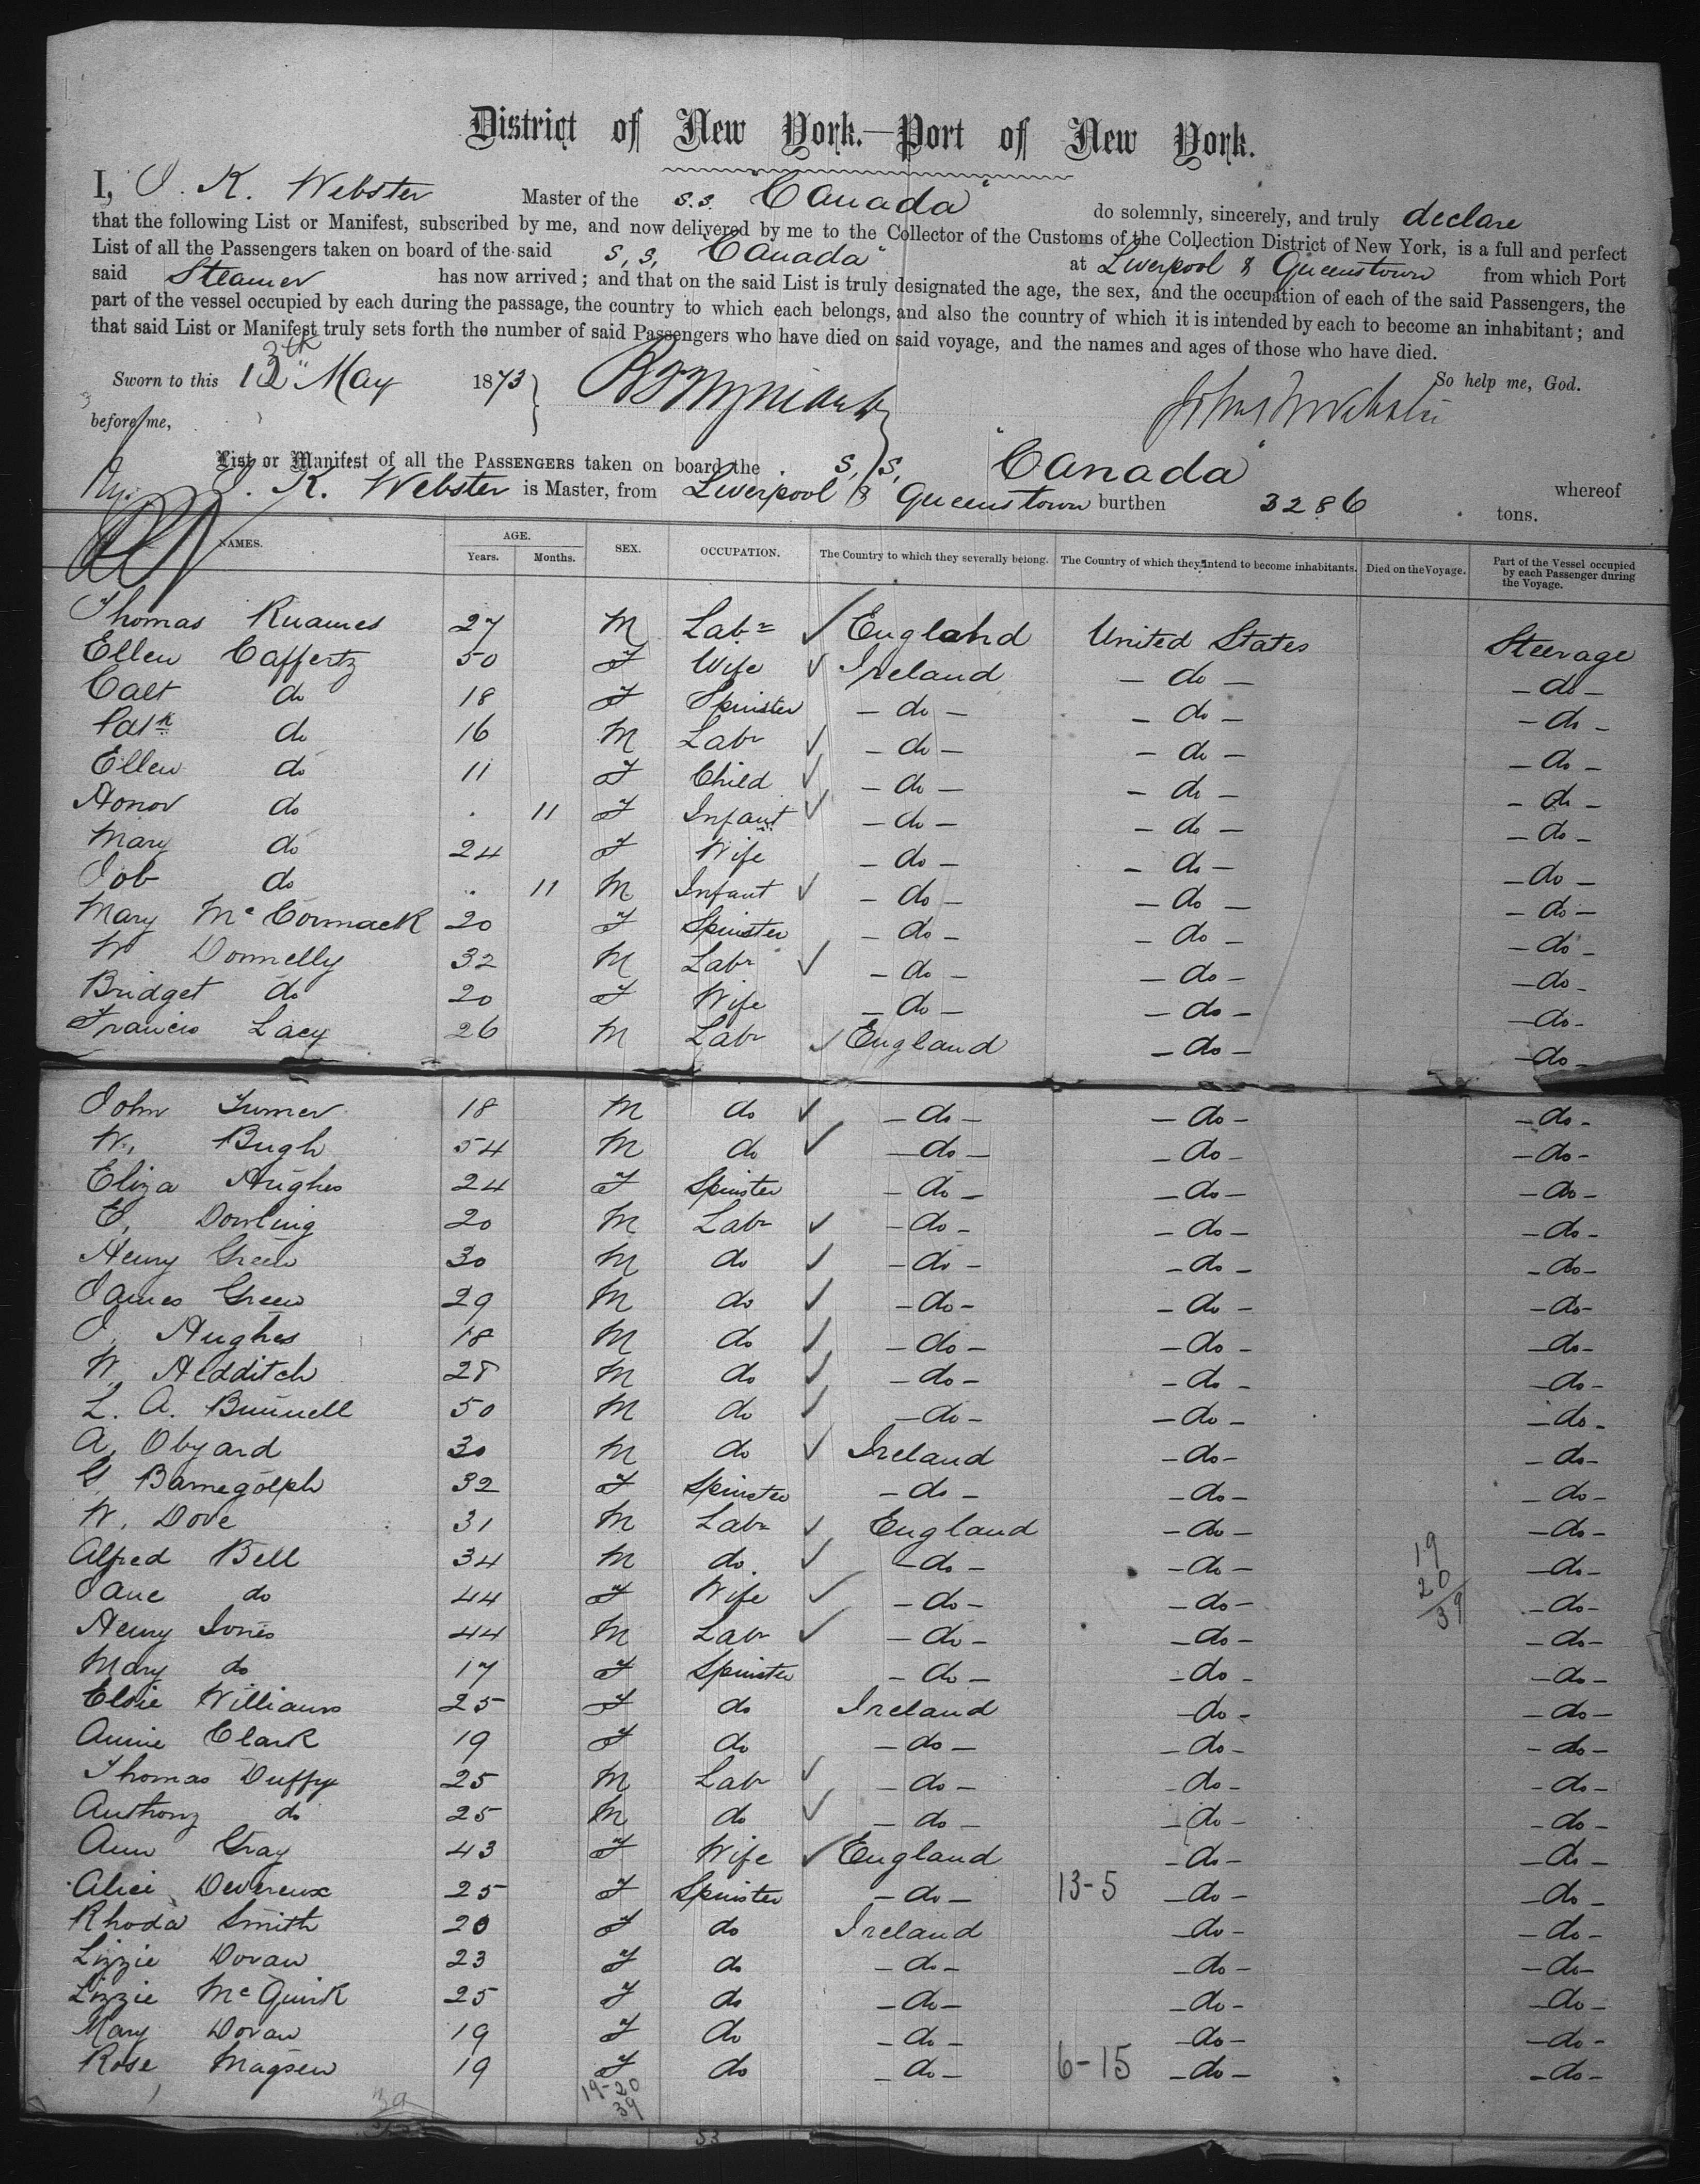 District of New York.—Port of New York.
I, J. K. Webster Master of the s.s. "Canada" do solemnly, sincerely, and truly declare
that the following List or Manifest, subscribed by me, and now delivered by me to the Collector of the Customs of the Collection District of New York, is a full and perfect
List of all the Passengers taken on board of the said s, s, Canada" at Liverpool & Queenstown from which Port
said Steamer has now arrived; and that on the said List is truly designated the age, the sex, and the occupation of each of the said Passengers, the
part of the vessel occupied by each during the passage, the country to which each belongs, and also the country of which it is intended by each to become an inhabitant; and
that said List or Manifest truly sets forth the number of said Passengers who have died on said voyage, and the names and ages of those who have died.
So help me, God.
Sworn to this 13th May 1873
before me,
List or Manifest of all the PASSENGERS taken on board the S, S, "Canada" whereof
J. K. Webster is Master, from Liverpool & Queenstown burthen 3286 tons.
NAMES. AGE. Years. Months. SEX. OCCUPATION. The Country to which they severally belong. The Country of which they intend to become inhabitants. Died on the Voyage. Part of the Vessel occupied by each Passenger during the Voyage.
Thomas 27 M Labr ✓ England United States Steerage
Ellen Caffertz 50 F Wife ✓ Ireland — do — — do —
Cact do 18 F Spinster — do — — do — — do —
Patk do 16 M Labr ✓ — do — — do — — do —
Ellen do 11 F Child ✓ — do — — do — — do —
Honor do . 11 F Infant ✓ — do — — do — — do —
Mary do 24 F Wife — do — — do — — do —
Job do . 11 M Infant ✓ — do — — do — — do —
Mary McCormack 20 F Spinster — do — — do — — do —
W Donnelly 32 M Labr ✓ — do — — do — — do —
Bridget do 20 F Wife — do — — do — — do —
Francis Lacy 26 M Labr ✓ England — do — — do —
John Turner 18 M do ✓ — do — — do — — do —
W. Bugh 54 M do ✓ — do — — do — — do —
Eliza Hughes 24 F Spinster — do — — do — — do —
E, Dowling 20 M Labr ✓ — do — — do — — do —
Henry Green 30 M do ✓ — do — — do — — do —
James Green 29 M do ✓ — do — — do — — do —
J, Hughes 18 M do ✓ — do — — do — — do —
W. Hedditch 28 M do ✓ — do — — do — — do —
L. A. Bunnell 50 M do ✓ — do — — do — — do —
A, Obyard 30 M do ✓ Ireland — do — — do —
G, Barnegolph 32 F Spinster — do — — do — — do —
W. Dove 31 M Labr ✓ England — do — — do —
Alfred Bell 34 M do ✓ — do — — do — 19 — do —
Jane do 44 F Wife ✓ — do — — do — 20 — do —
39
Henry Jones 44 M Labr ✓ — do — — do — — do —
Mary do 17 F Spinster — do — — do — — do —
Elsie Williams 25 F do Ireland — do — — do —
Annie Clark 19 F do — do — — do — — do —
Thomas Duffy 25 M Labr ✓ — do — — do — — do —
Anthony do 25 M do ✓ — do — — do — — do —
Ann Gray 43 F Wife ✓ England — do — — do —
Alice Devereux 25 F Spinster — do — 13-5 — do — — do —
Rhoda Smith 20 F do Ireland — do — — do —
Lizzie Doran 23 F do — do — — do — — do —
Lizzie McQuirk 25 F do — do — — do — — do —
Mary Doran 19 F do — do — — do — — do —
Rose Magsen 19 F do — do — 6-15 — do — — do —
39 19-20
39
53